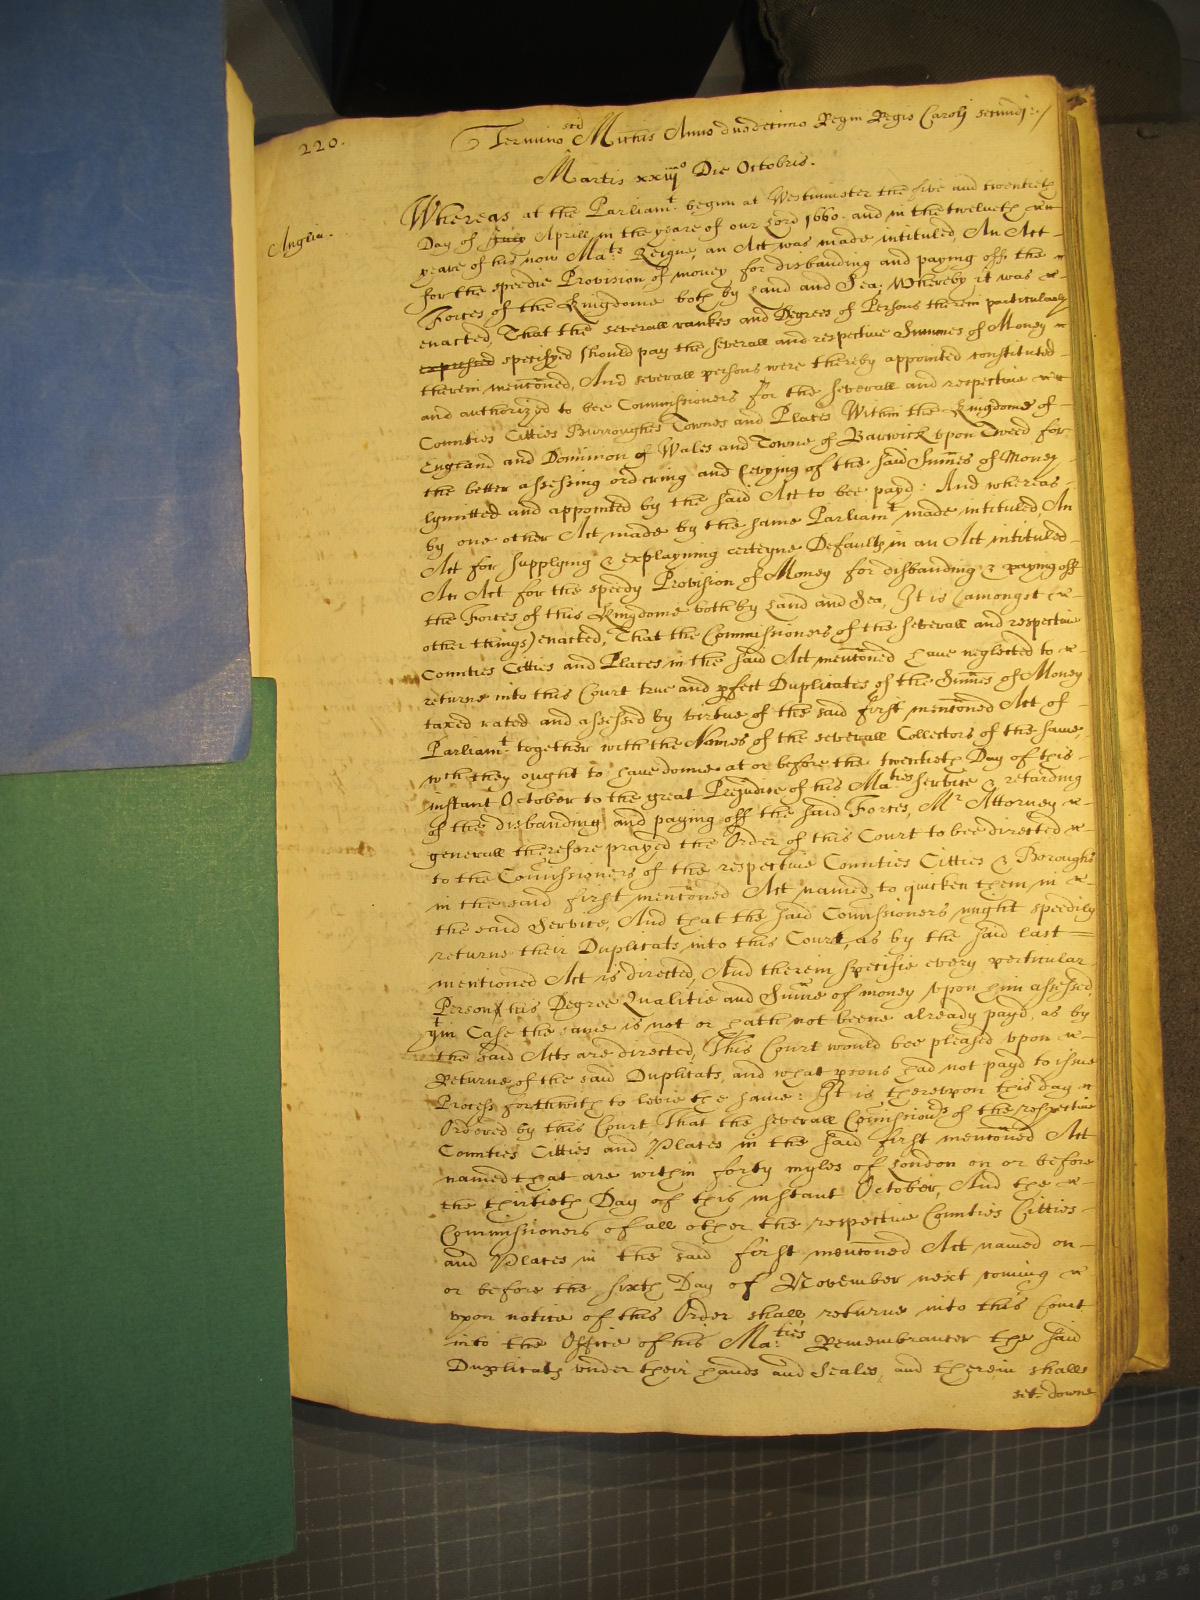 220.
Termino scti Michis Anno duodecimo Regni Regis Caroli secundi:/
Martis xxiijo Die Octobris.
Anglia.
Whereas at the Parliamt. begun at Westminster the five and twentieth
Day of July Aprill in the yeare of our Lord 1660. and in the twelveth
yeare of his now Mats. Reigne, an Act was made intituled, An Act
for the speedie Provision of money for disbanding and paying off the
Forces of the Kingdome both by Land and Sea; Whereby it was
enacted, That the severall rankes and Degrees of Persons therein particularly
expressed specifyed should pay the severall and respective Summes of Money
therein mencioned, And severall persons were thereby appointed constituted
and authorized to bee Commissioners for the severall and respective
Counties Citties Burroughes Townes and Places Within the Kingdome of
England and Dominion of Wales and Towne of Barwick upon Tweed for
the better assessing ordering and levying of the said Sumes of Money
lymitted and appointed by the said Act to bee payd: And whereas
by one other Act made by the same Parliamt. made intituled, An
Act for supplying & explayning certeyne Defaults in an Act intituled
An Act for the speedy Provision of Money for disbanding & paying off
the Forces of this Kingdome both by Land and Sea, It is (amongst
other things) enacted, That the Commissioners of the severall and respective
Counties Citties and Places in the said Act mencioned have neglected to
returne into this Court true and pfect Duplicates of the Sumes of Money
taxed rated and assessed by virtue of the said first mencioned Act of
Parliamt. together with the Names of the severall Collectors of the same,
wch they ought to have donne at or before the twentieth Day of this
instant October to the great Prejudice of his Maties service & retarding
of the disbanding and paying off the said Forces, Mr. Attorney
generall therefore prayed the Order of this Court to bee directed
to the Comissioners of the respective Counties Citties & Boroughs
in the said first mencioned Act named to quicken them in
the said Service, And that the said Comissioners might speedily
returne their Duplicats into this Court, as by the said last
mentioned Act is directed, And therein specifie every perticular
Person his Degree Qualitie and Sume of money upon him assessed
in Case the same is not or hath not beene already payd, as by
the said Acts are directed, This Court would bee pleased upon
Returne of the said Duplicats, and what psons had not payd to issue
Process forthwith to levie the same: It is thereupon this day
Ordered by this Court That the severall Comissionrs of the respective
Counties Citties and Places in the said first mencioned Act
named that are within forty myles of London on or before
the thirtieth Day of this instant October, And the
Commissioners of all other the respective Counties Citties
and Places in the said first mencioned Act named on
or before the sixth Day of November next coming
upon notice of this Order shall returne into this Court
into the Office of his Maties: Remembrancer the said
Duplicats under their hands and Seales, and therein shall
set downe